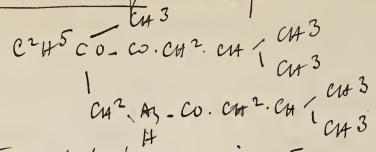 CH3
C2H5 CO - CO . CH2 . CH CH3
CH3
CH2 Az - CO . CH2 . CH CH3
H CH3